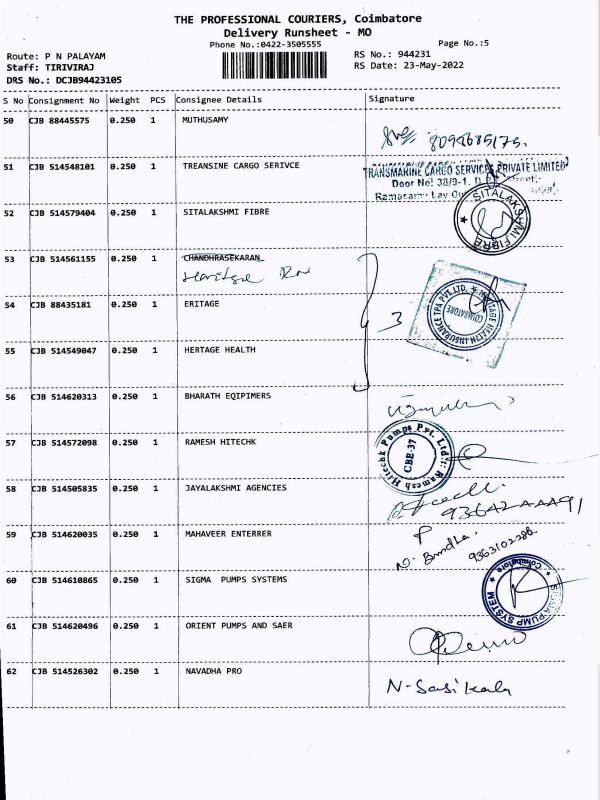 THE PROFESSIONAL COURIERS, Coimbatore
Delivery Runsheet - MO
Phone No.:0422-3505555
Page No.:5
Route: P N PALAYAM
RS No.: 944231
Staff: TIRIVIRAJ
RS Date: 23-May-2022
DRS No.: DCJB94423105
S No Consignment No Weight PCS Consignee Details Signature
50 CJB 88445575 0.250 1 MUTHUSAMY
51 CJB 514548101 0.250 1 TREANSINE CARGO SERIVCE
TRANSMARINE CARGO SERVICES PRIVATE LIMITED
Door No: 38/9-1,
Ramasamy Lay Out
52 CJB 514579404 0.250 1 SITALAKSHMI FIBRE
SITALAKSHMI FIBRE
53 CJB 514561155 0.250 1 CHANDHRASEKARAN
Heritage
54 CJB 88435181 0.250 1 ERITAGE
3
HERITAGE HEALTH INSURANCE TPA PVT. LTD.
COIMBATORE
55 CJB 514549047 0.250 1 HERTAGE HEALTH
56 CJB 514620313 0.250 1 BHARATH EQIPIMERS
57 CJB 514572098 0.250 1 RAMESH HITECHK
Ramesh Hitechk Pumps Pvt. Ltd.
CBE-37
58 CJB 514505835 0.250 1 JAYALAKSHMI AGENCIES
59 CJB 514620035 0.250 1 MAHAVEER ENTERRER
9363102286
60 CJB 514610865 0.250 1 SIGMA PUMPS SYSTEMS
SIGMA PUMP SYSTEM
Coimbatore
61 CJB 514620496 0.250 1 ORIENT PUMPS AND SAER
62 CJB 514526302 0.250 1 NAVADHA PRO
N-Sasikala